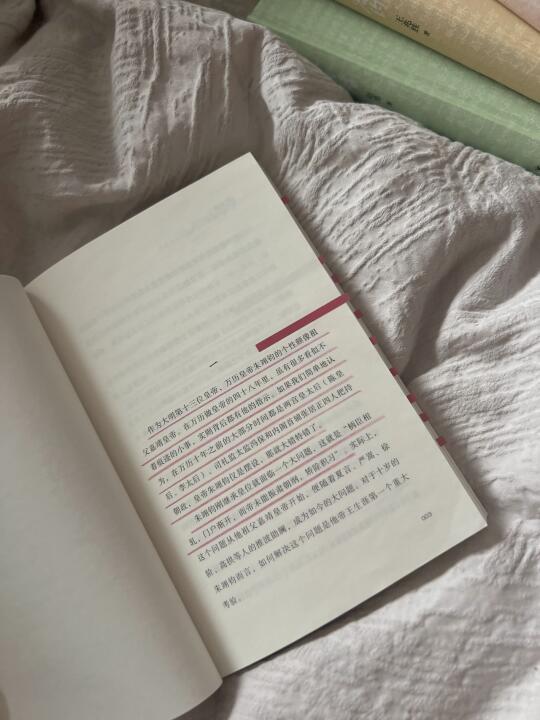 王志胜 著
一
作为大明第十三位皇帝，万历皇帝朱翊钧的个性颇像祖
父嘉靖皇帝，在万历做皇帝的四十八年里，虽有很多看似不
着痕迹的小事，实则背后都有他的指示。如果我们简单地认
为，在万历十年之前的大部分时间都是两宫皇太后（陈皇
后、李太后）、司礼太监冯保和内阁首辅张居正四人把持
朝政，皇帝朱翊钧仅是摆设，那就大错特错了。
朱翊钧刚继承皇位就面临一个大问题，这就是“辅臣相
轧，门户渐开，而帝未能振肃朝纲，矫除积习”。实际上，
这个问题从他祖父嘉靖皇帝开始，便随着夏言、严嵩、徐
阶、高拱等人的推波助澜，成为如今的大问题。对于十岁的
朱翊钧而言，如何解决这个问题是他帝王生涯第一个重大
考验。
003